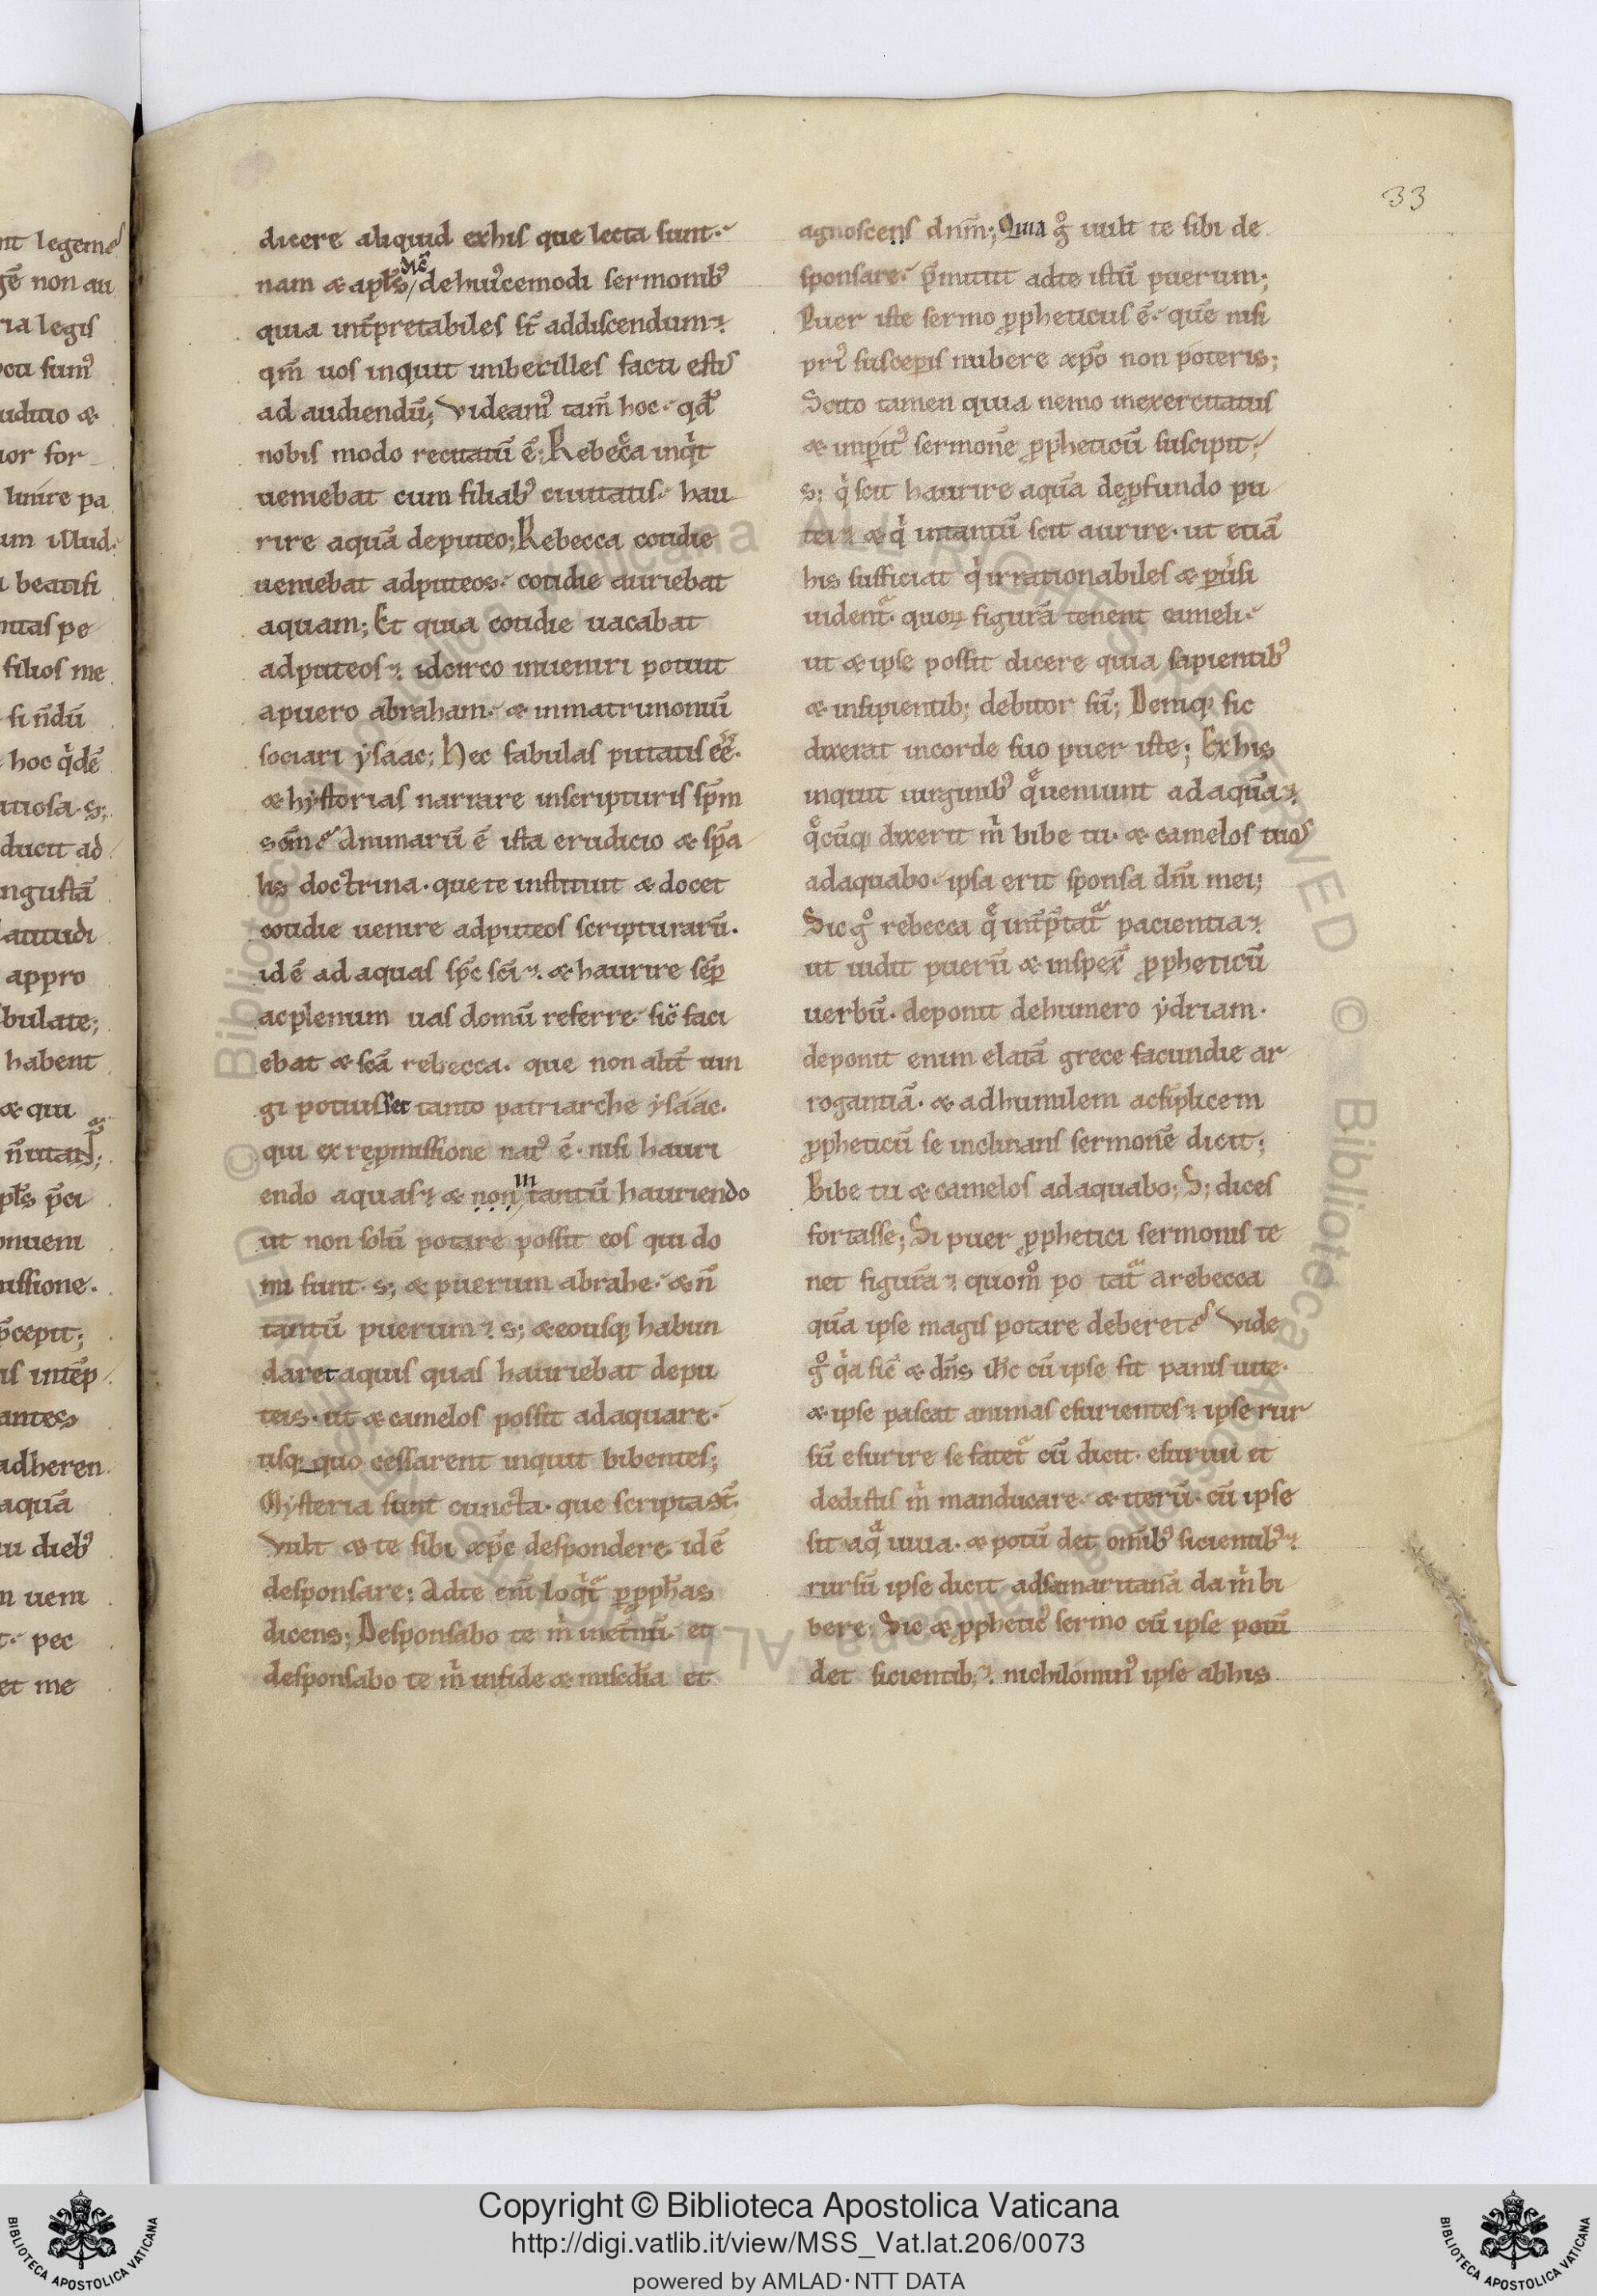 nt legem
gē non au
ria legis
ocu sumꝰ
uditio &
uor for
linire pa
um illud
beatifi
nuas pe
filios me
si n̄dū
hoc qͥdē
utiosa. s;
ducit ad
ngustā
appro
bulate;
habent
& qui
pl̄s p̄ci
onueni
ussione.
p̄cepit;
antes
adheren
aquā
diebꝰ
n ueni
pec
et me
33
dicere aliquid exhis que lecta sunt.
nam & apl̄s dic̄ dehuꝰcemodi sermonibꝰ
quia int̄pretabiles st̄ addiscendum.
qm̄ uos inquit inbecilles facti estis
ad audiendū; Videamꝰ tam̄ hoc. qd̄
nobis modo recitatū ē; Rebecca inqͥt
ueniebat cum filiabꝰ ciuitatis. hau
rire aquā deputeo; Rebecca cotidie
ueniebat adputeos. cotidie auriebat
aquam; Et quia cotidie uacabat
adputeos. idcirco inueniri potuit
apuero abraham. & inmatrimoniū
sociari ysaac; Hec fabulas putatis ēē.
& hystorias narrare inscripturis sp̄m
sc̄m? Animarū ē ista erudicio & sp̄a
lis doctrina. que te instituit & docet
cotidie uenire adputeos scripturarū.
id ē ad aquas sp̄c sc̄i. & haurire sēp
acplenum uas domū referre. sic̄ faci
ebat & sc̄a rebecca. que non alit̄ iun
gi potuisset tanto patriarche ysaac.
qui ex repmissione natꝰ ē. nisi hauri
endo aquas. & non in tantū hauriendo
ut non solū potare possit eos qui do
mi sunt. s; & puerum abrahe. & n̄
tantū puerum. s; & eousq; habun
daret aquis quas hauriebat depu
teis. ut & camelos possit adaquare.
usq; quo cessarent inquit bibentes;
Mysteria sunt cuncta. que scripta st̄.
Vult & te sibi xp̄c despondere. id ē
desponsare; Adte eni loqͥt̄ p pph̄as
dicens; Desponsabo te m̄ inet̄nū. et
desponsabo te m̄ infide & misc̄dia et
agnoscens dnm̄; Quia gͦ uult te sibi de
sponsare. p̄mittit adte istū puerum;
Puer iste sermo ppheticus ē. quē nisi
priꝰ susceperis nubere xp̄o non poteris;
Scito tamen quia nemo inexercitatus
& imperitꝰ sermonē ppheticū suscipit,
s; qͥ scit haurire aquā depfundo pu
tei. & qͥ intantū scit aurire. ut etiā
his sufficiat qͥ irrationabiles & puersi
uident̄. quoꝝ figurā tenent cameli.
ut & ipse possit dicere quia sapientibꝰ
& insipientib; debitor sū; Deniq; sic
dixerat incorde suo puer iste; Ex his
inquit uirginibꝰ que ueniunt ad aquā.
qͤcūq; dixerit m̄ bibe tu. & camelos tuos
adaquabo. ipsa erit sponsa dn̄i mei;
Sic gͦ rebecca qͤ int̄p̄tat̄ pacientia.
ut uidit puerū & inspex̄ ppheticū
uerbū. deponit dehumero ydriam.
deponit enim elatā grece facundie ar
rogantiā. & adhumilem acsīplicem
ppheticū se inclinans sermonē dicit;
Bibe tu & camelos adaquabo; S; dices
fortasse; Si puer pphetici sermonis te
net figurā. quomͦ po tat̄ arebecca
quā ipse magis potare deberet? Vide
gͦ qͥa sic̄ & dn̄s ih̄c cū ipse sit panis uite.
& ipse pascat animas esurientes. ipse rur
sū esurire se fatet̄ cū dicit. esuriui et
dedistis m̄ manducare. & iterū. cū ipse
sit aqͣ uiua. & potū det omībꝰ sicientibꝰ.
rursū ipse dicit adsamaritanā da m̄ bi
bere; Sic & ppheticꝰ sermo cū ipse potū
det sicientib;. nichilominꝰ ipse abhis
Copyright © Biblioteca Apostolica Vaticana
http://digi.vatlib.it/view/MSS_Vat.lat.206/0073
powered by AMLAD·NTT DATA
BIBLIOTECA APOSTOLICA VATICANA
BIBLIOTECA APOSTOLICA VATICANA